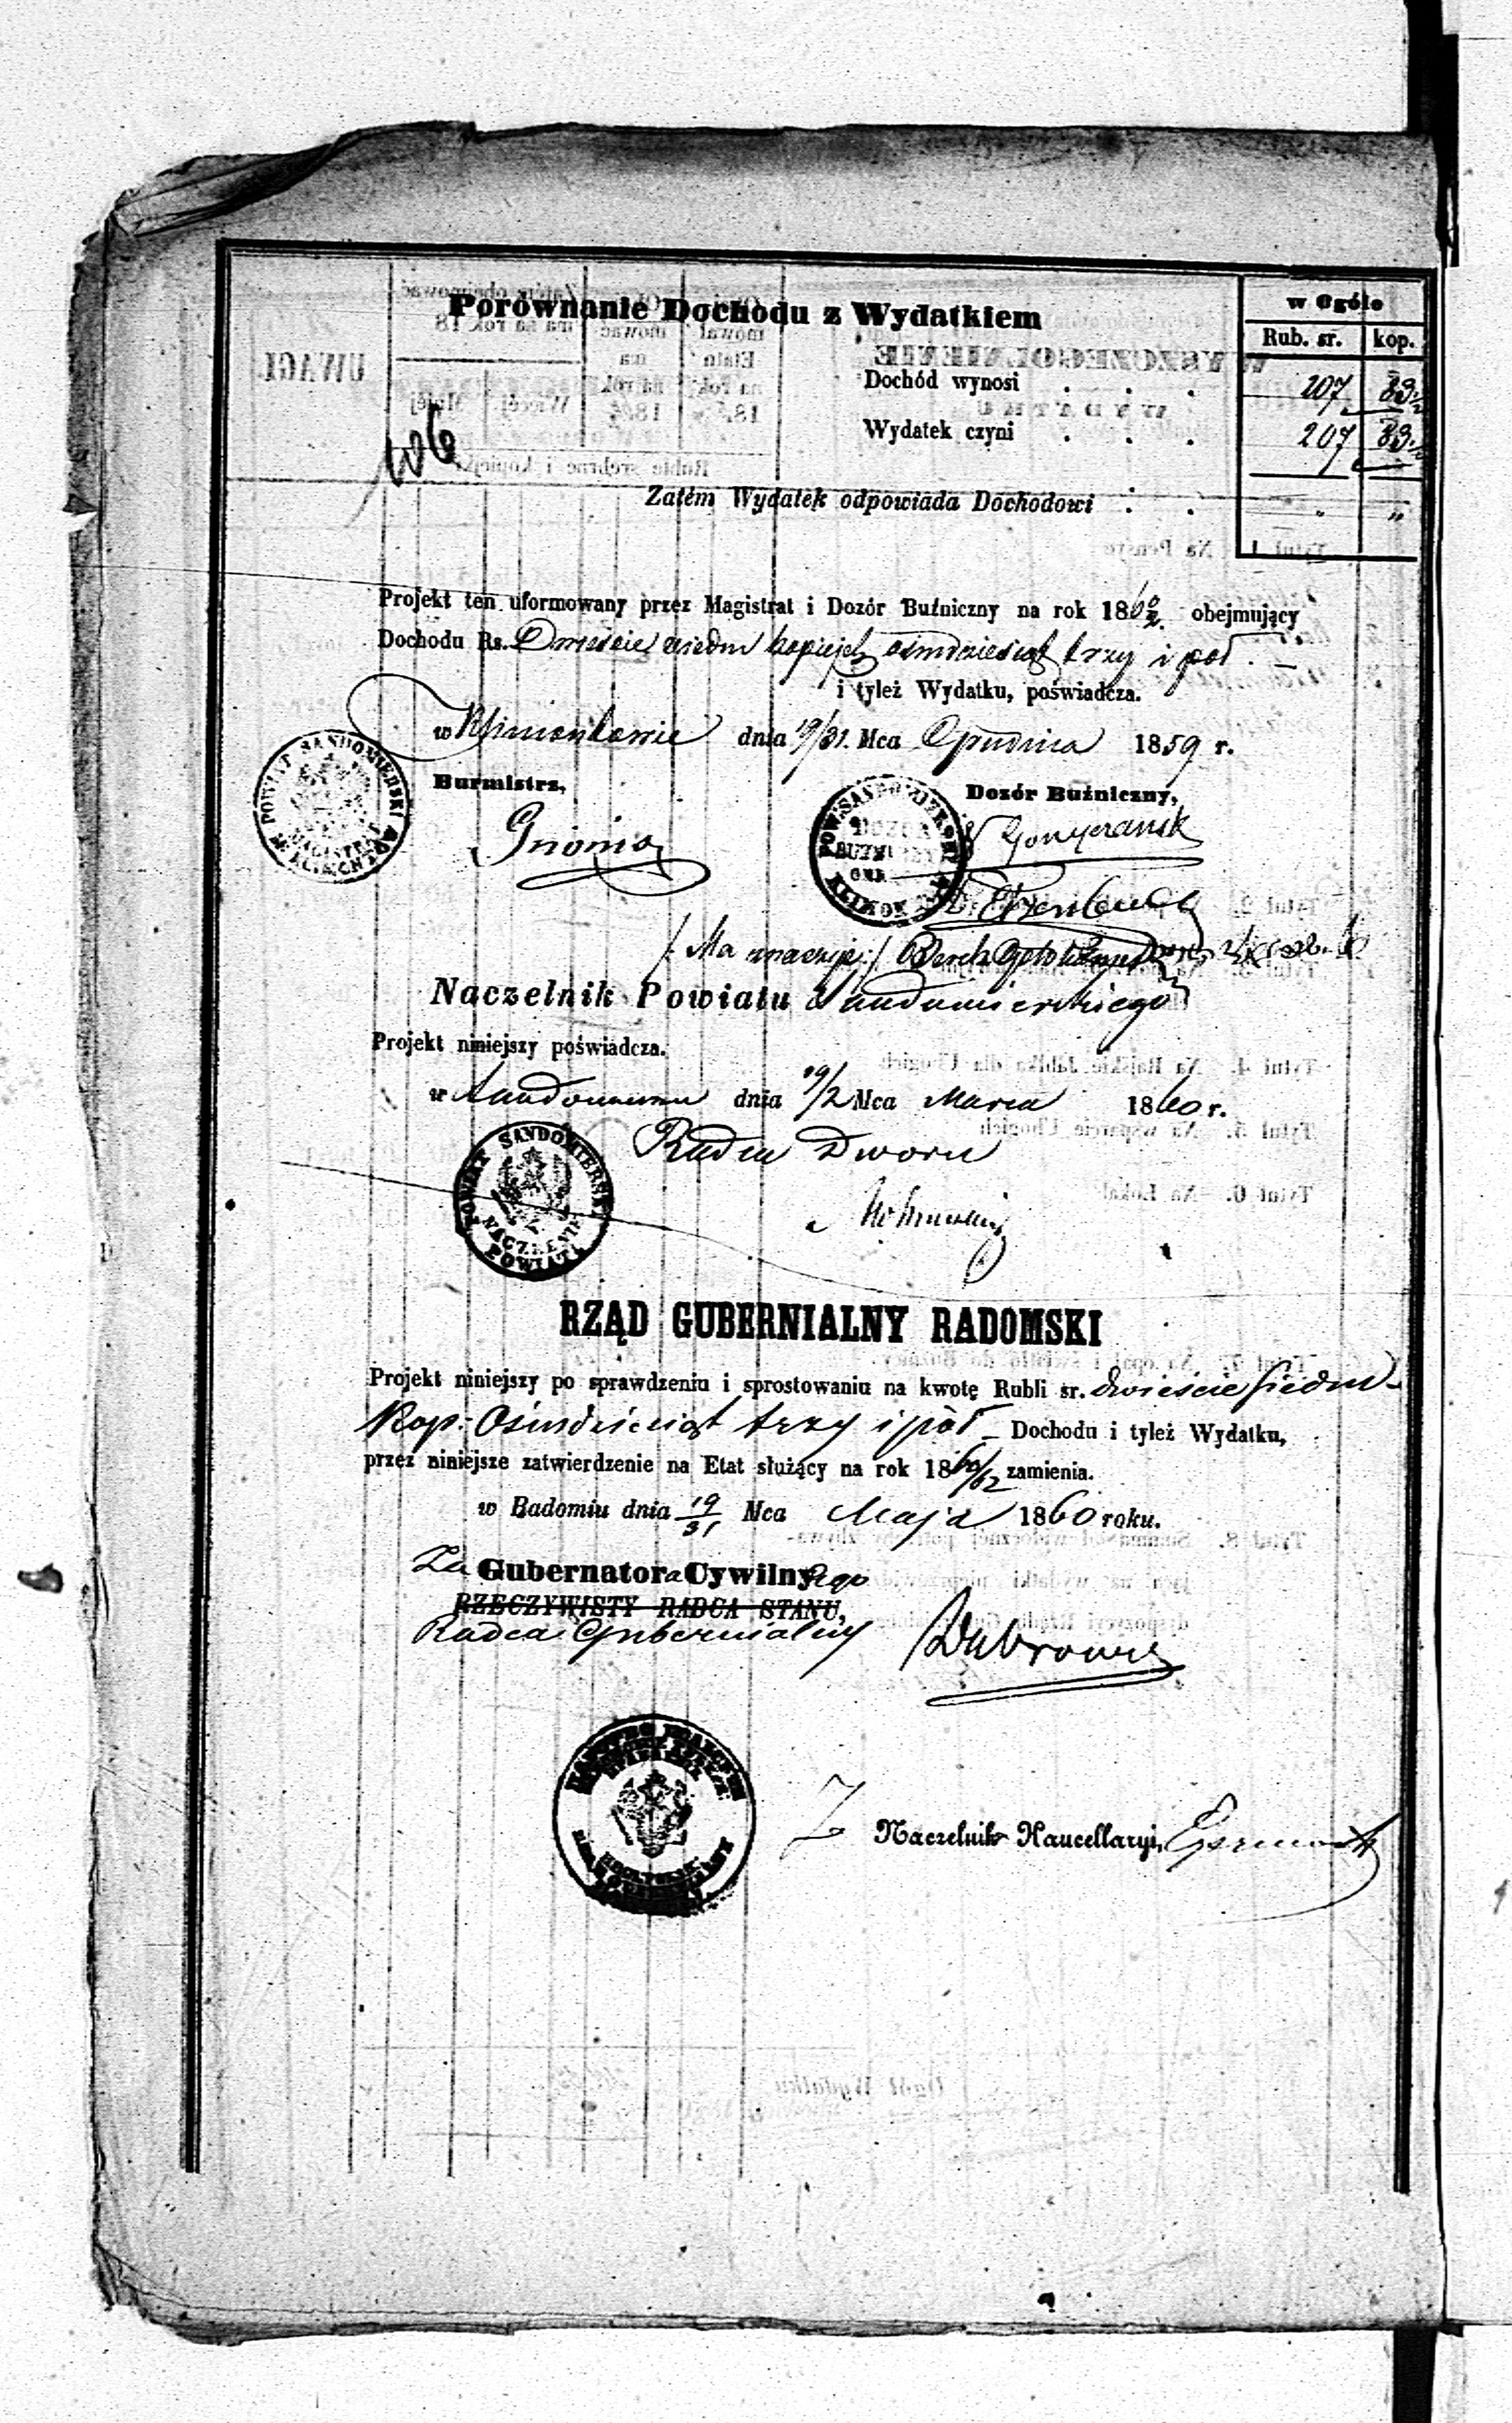 Porównanie Dochodu z Wydatkiem
w Ogóle
Rub. sr. kop.
Dochód wynosi . . . 207 83½
Wydatek czyni . . . 207 83½
106
Zatém Wydatek odpowiada Dochodowi . . " "
Projekt ten uformowany przez Magistrat i Dozór Bużniczny na rok 1860/2. obejmujący
Dochodu Rs. Dwieście siedm kopiejek ośmdziesiąt trzy i pół. —
i tyleż Wydatku, poświadcza.
w Klimontowie dnia 19/31. Mca Grudnia 1859 r.
Burmistrz,
Dozór Bużniczny,
POWIAT SANDOMIERSKI
MAGISTRAT
Naczelnik Powiatu Sandomierskiego
Projekt niniejszy poświadcza.
w Sandomierzu dnia 19/2 Mca Marca 1860 r.
Radca Dworu
POWIAT SANDOMIERSKI
NACZELNIK
POWIATU
RZĄD GUBERNIALNY RADOMSKI
Projekt niniejszy po sprawdzeniu i sprostowaniu na kwotę Rubli sr. dwieście siedm
Kop: Ośmdziesiąt trzy i pół — Dochodu i tyleż Wydatku,
przez niniejsze zatwierdzenie na Etat służący na rok 1860/62 zamienia.
w Radomiu dnia 19/31 Mca Maja 1860 roku.
Za Gubernatora Cywilnego
RZECZYWISTY RADCA STANU,
Radca Gubernialny
Naczelnik Kancellaryi,